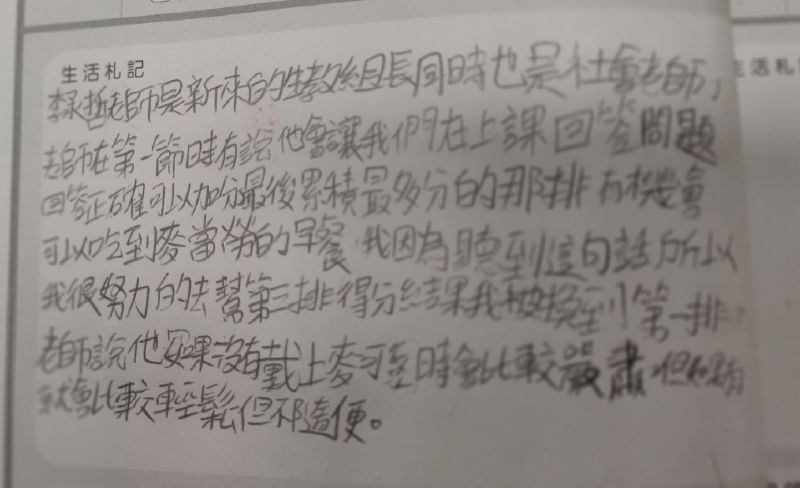 生活札記
李承哲老師是新來的生教組長同時也是社會老師，
老師在第一節時有說他會讓我們在上課回答問題
回答正確可以加分最後累積最多分的那排有機會
可以吃到麥當勞的早餐 我因為聽到這句話所以
我很努力的去幫第三排得分結果我被換到第一排
老師說他如果沒有戴上麥可 時會比較嚴肅 但如果有
就會比較輕鬆但不隨便。
生活札